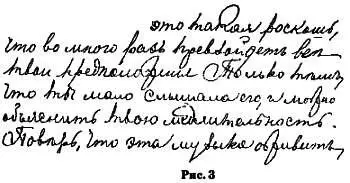 это такая роскошь,
что во много разъ превзойдетъ все
твои предположения Только тѣмъ,
что ты мало слышала его, и можно
объяснить твою медлительность.
Повѣрь, что эта музыка оживитъ
Рис. 3